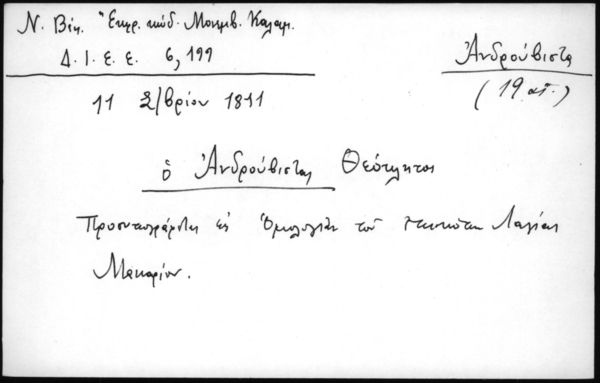 Ν. Βέη. Ἐκφρ. κώδ. Μονεμβ. Καλαμ.
Δ. Ι. Ε. Ε. 6, 199
Ἀνδρούβιστα
(19 αἰ.)
11 2/βρίου 1811
ὁ Ἀνδρούβιστας Θεόκλητος
Προσυπογράφεται εἰς Ὁμολογίαν τοῦ Λαγίας
Μακαρίου.